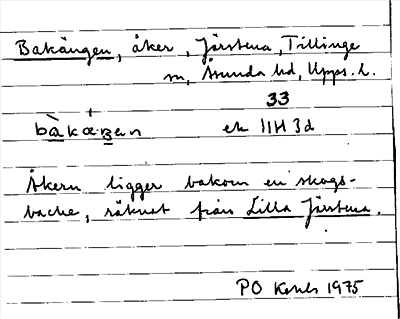 Bakängen, åker, Järstena, Tillinge
sn, Åsunda hd, Upps. l.
33
bàkæŋen ek 11H 3d
Åkern ligger bakom en skogs-
backe, räknat från Lilla Järstena.
PO 1975